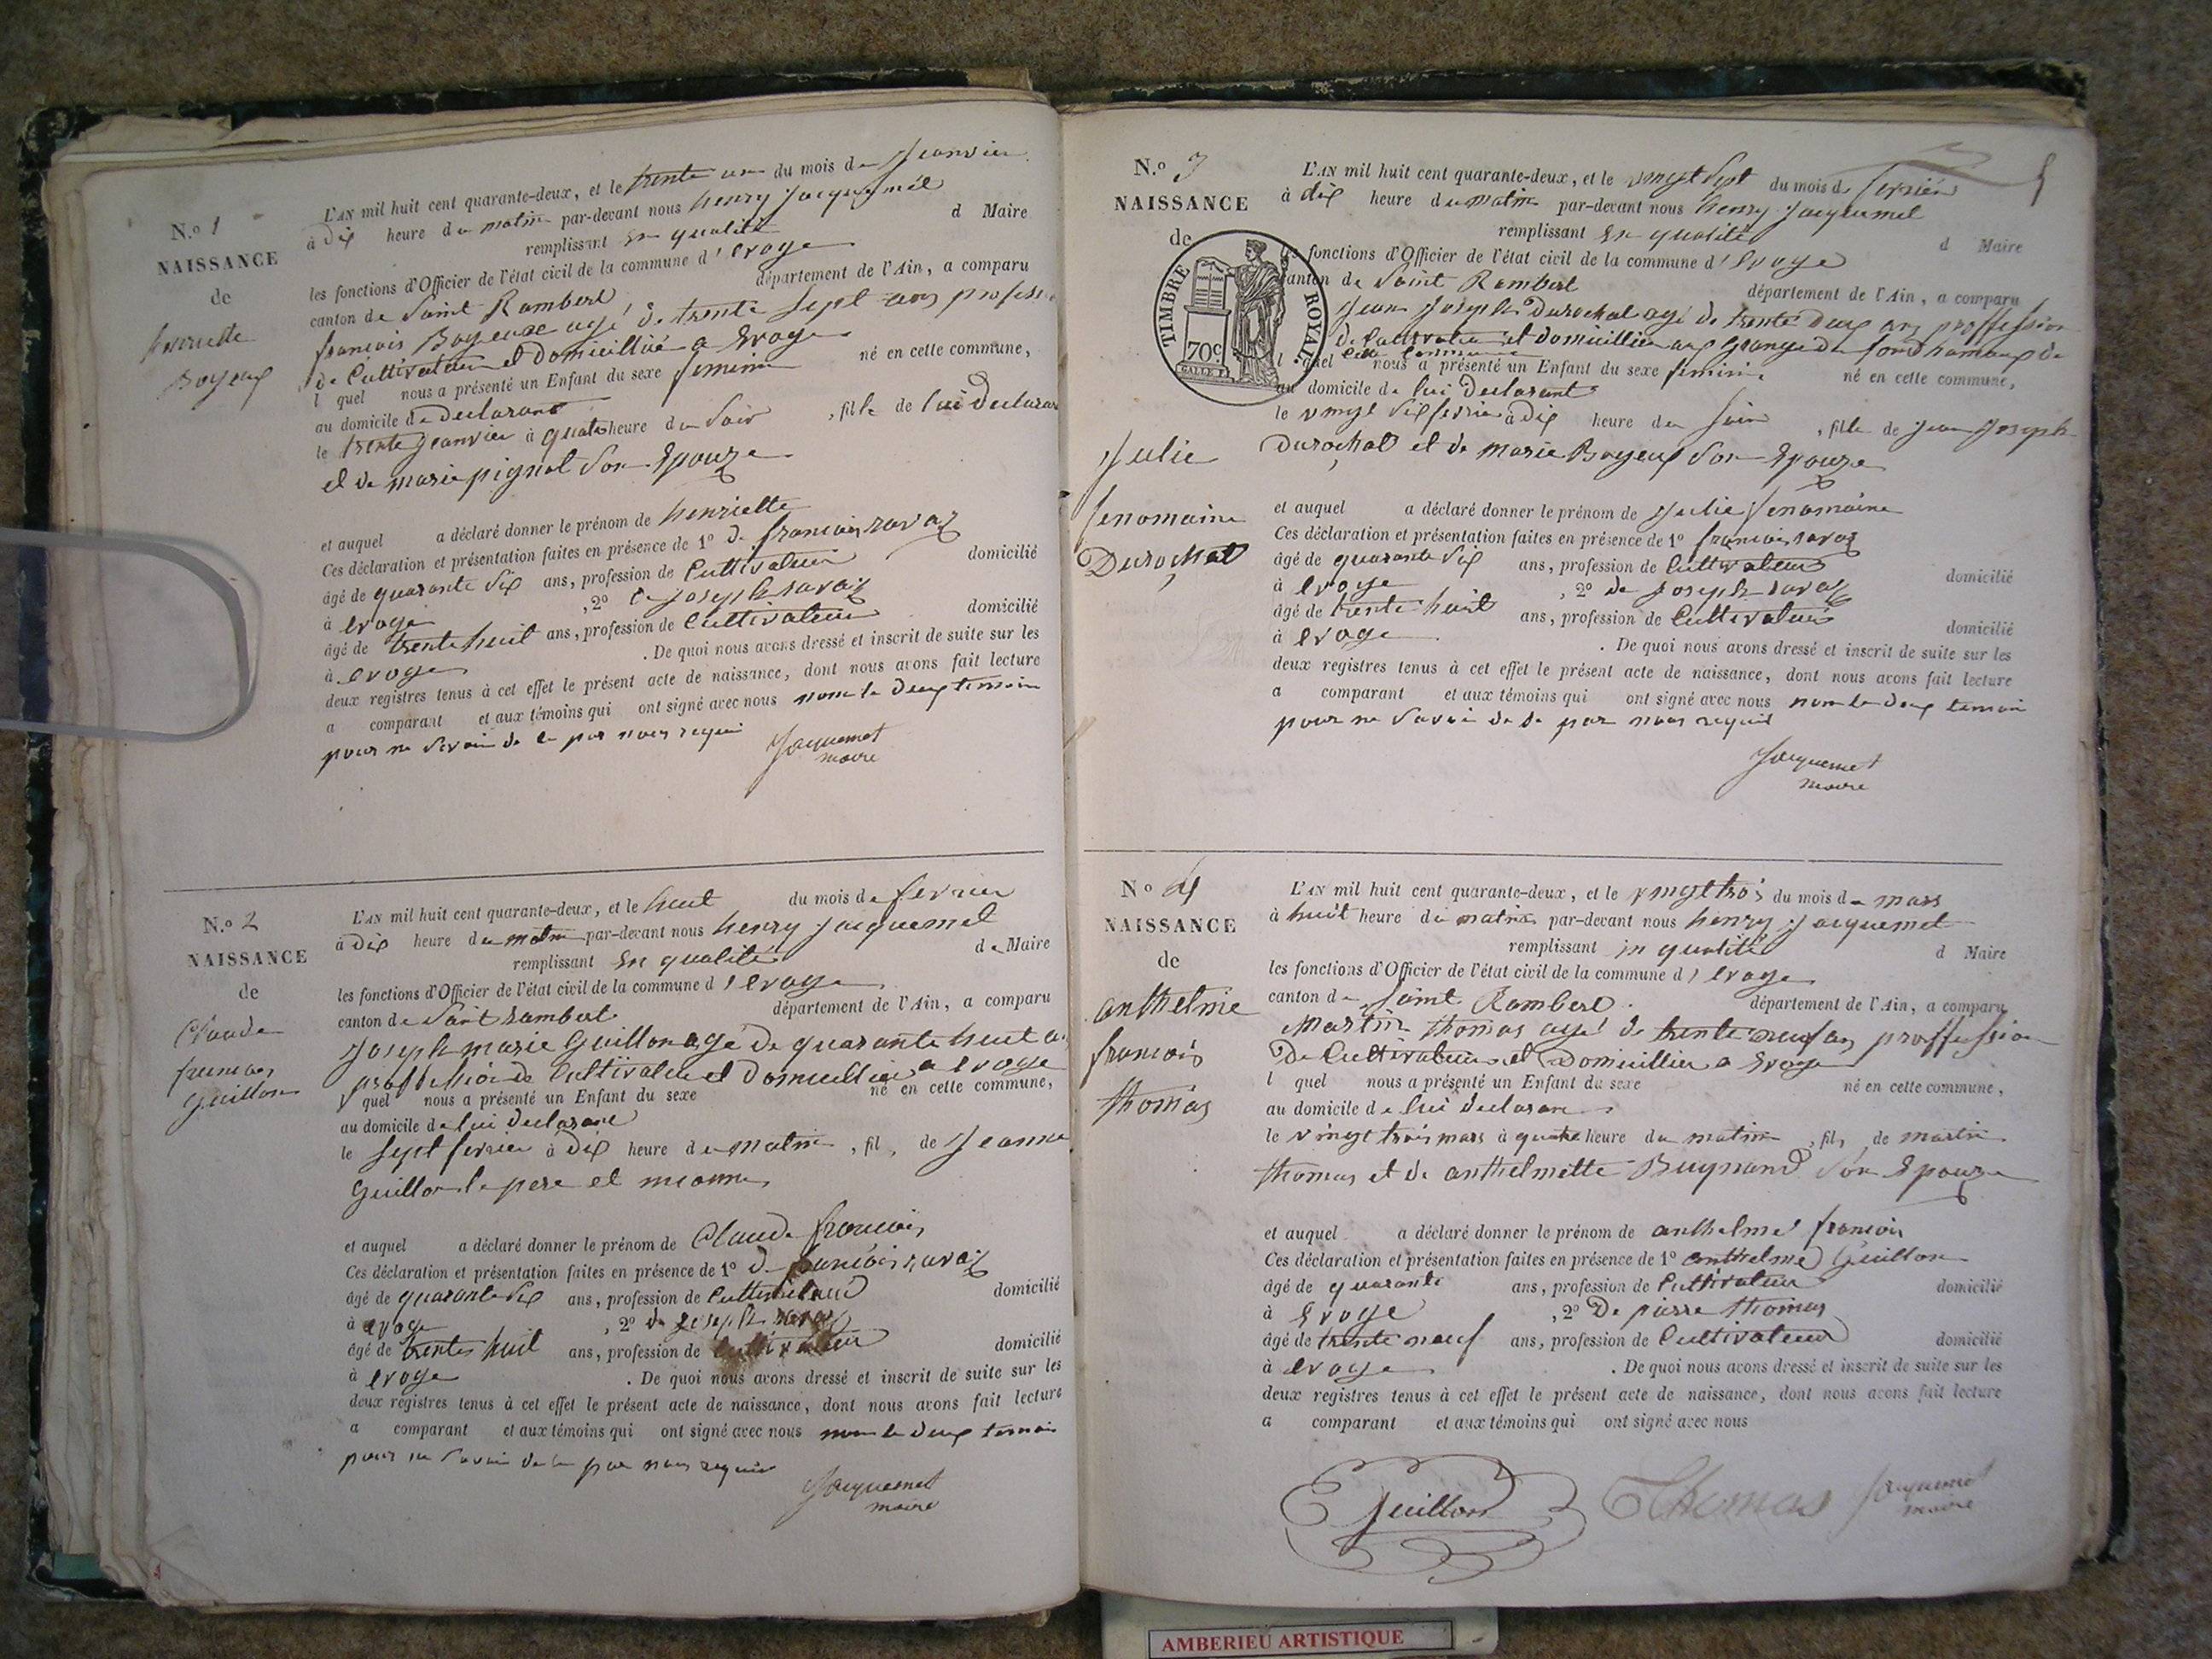 N.º 1
NAISSANCE
de
henriette
Boyeux
L'AN mil huit cent quarante-deux, et le trente un du mois de Jeanvier
à Dix heure du matin par-devant nous henry Jacquemet
remplissant En qualité d Maire
les fonctions d'Officier de l'état civil de la commune d' Evoge
canton de Saint Rambert département de l'Ain, a comparu
francois Boyeux agé de trente sept ans profess
de Cultivateur et Domicillié a Evoge
l quel nous a présenté un Enfant du sexe feminin né en cette commune,
au domicile de Declarant
le trente Jeanvier à quatre heure du Soir , fille de lui Declarant
et de marie pignol Son Epouze
et auquel a déclaré donner le prénom de henriette
Ces déclaration et présentation faites en présence de 1º de francois ravaz
âgé de quarante six ans, profession de Cultivateur domicilié
à Evoge , 2º de joseph ravaz
âgé de trente huit ans, profession de Cultivateur domicilié
à Evoge . De quoi nous avons dressé et inscrit de suite sur les
deux registres tenus à cet effet le présent acte de naissance, dont nous avons fait lecture
a comparant et aux témoins qui ont signé avec nous non le deux temoin
pour ne savoir de ce par nous requi
Jacquemet
maire
N.º 2
NAISSANCE
de
Claude
francois
Guillon
L'AN mil huit cent quarante-deux, et le huit du mois de fevrier
à Dix heure du matin par-devant nous henry Jacquemet
remplissant En qualité de Maire
les fonctions d'Officier de l'état civil de la commune d' Evoge
canton de Saint rambert département de l'Ain, a comparu
Joseph marie Guillon agé de quarante huit a
proffession de Cultivateur et Domicillier a Evoge
l quel nous a présenté un Enfant du sexe né en cette commune,
au domicile de lui declarant
le sept fevrier à Dix heure du matin , fils de Jeanne
Guillon le pere et
et auquel a déclaré donner le prénom de Claude francois
Ces déclaration et présentation faites en présence de 1º de francois ravaz
âgé de quarante six ans, profession de Cultivateur domicilié
à Evoge , 2º de joseph ravaz
âgé de trente huit ans, profession de Cultivateur domicilié
à Evoge . De quoi nous avons dressé et inscrit de suite sur les
deux registres tenus à cet effet le présent acte de naissance, dont nous avons fait lecture
a comparant et aux témoins qui ont signé avec nous non le deux temoin
pour ne savoir de ce par nous requi
Jacquemet
maire
N.º 3
NAISSANCE
de
TIMBRE ROYAL
70c
Julie
fenomaine
Durochat
L'AN mil huit cent quarante-deux, et le vingt Sept du mois de fevrier
à dix heure du matin par-devant nous henry Jacquemet
remplissant En qualité d Maire
les fonctions d'Officier de l'état civil de la commune d' Evoge
canton de Saint Rambert département de l'Ain, a comparu
Jean Joseph Durochat agé de trente deux ans proffession
de Cultivateur et domicillier aux Grange du fond hameaux de
cette Commune
l quel nous a présenté un Enfant du sexe feminin né en cette commune,
au domicile de lui Declarant
le vingt six fevrier à Dix heure du Soir , fille de Jean Joseph
Durochat et de marie Boyeux Son Epouze
et auquel a déclaré donner le prénom de Julie fenomaine
Ces déclaration et présentation faites en présence de 1º francois ravaz
âgé de quarante six ans, profession de Cultivateur domicilié
à Evoge , 2º de joseph ravaz
âgé de trente huit ans, profession de Cultivateur domicilié
à Evoge . De quoi nous avons dressé et inscrit de suite sur les
deux registres tenus à cet effet le présent acte de naissance, dont nous avons fait lecture
a comparant et aux témoins qui ont signé avec nous non le deux temoin
pour ne savoir de ce par nous requis
Jacquemet
maire
Nº 4
NAISSANCE
de
anthelme
francois
thomas
L'AN mil huit cent quarante-deux, et le vingt trois du mois de mars
à huit heure du matin par-devant nous henry Jacquemet
remplissant in qualité d Maire
les fonctions d'Officier de l'état civil de la commune d' Evoge
canton de Saint Rambert département de l'Ain, a comparu
Martin thomas agé de trente neuf an proffession
De Cultivateur et Domicillier a Evoge
l quel nous a présenté un Enfant du sexe né en cette commune,
au domicile de lui declarant
le vingt trois mars à quatre heure du matin , fils de martin
thomas et de anthelmette Buynand Son Epouze
et auquel a déclaré donner le prénom de anthelme francois
Ces déclaration et présentation faites en présence de 1º anthelme Guillon
âgé de quarante ans, profession de Cultivateur domicilié
à Evoge , 2º De pierre thomas
âgé de trente neuf ans, profession de Cultivateur domicilié
à Evoge . De quoi nous avons dressé et inscrit de suite sur les
deux registres tenus à cet effet le présent acte de naissance, dont nous avons fait lecture
a comparant et aux témoins qui ont signé avec nous
Guillon Thomas Jacquemet
maire
AMBERIEU ARTISTIQUE